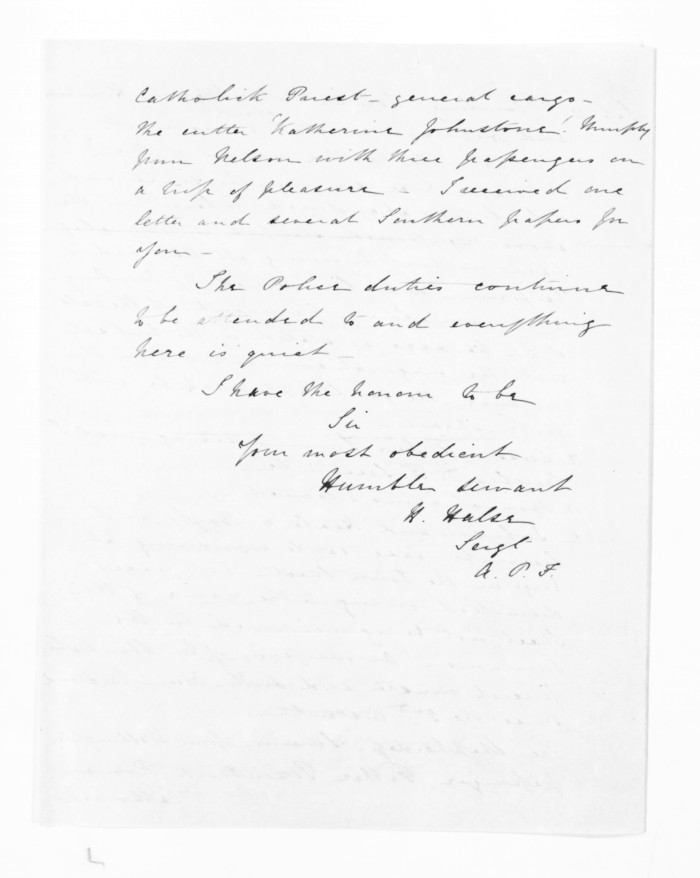 Catholick Priest - general cargo -
the cutter 'Katherine Johnstone'. Murphy
from Nelson with three passengers on
a trip of pleasure - I received one
letter and several Southern papers for
you -
The Police duties continue
to be attended to and everything
here is quiet -
I have the honour to be
Sir
Your most obedient
Humble servant
H. Halse
Sergt
A. P. F.